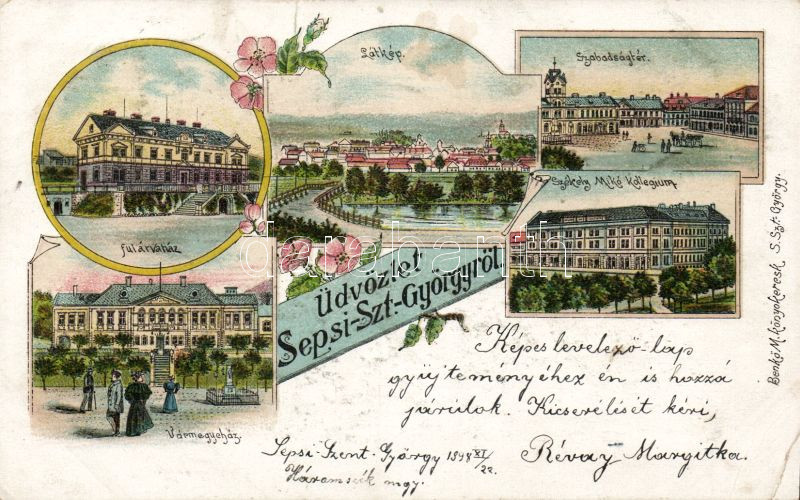 Látkép.
Szabadságtér.
Székely Mikó Kollegium.
fiúárvaház
Vármegyeház.
Üdvözlet
Sepsi-Szt.-Györgyről.
Benkő M. könyvkeresk. S. Szt. György.
Képes levelező-lap
gyüjteményéhez én is hozzá
járúlok. Kicserélését kéri,
Révay Margitka.
Sepsi-Szent-György 1898 XI/22.
Háromszék mgy.
darabanth